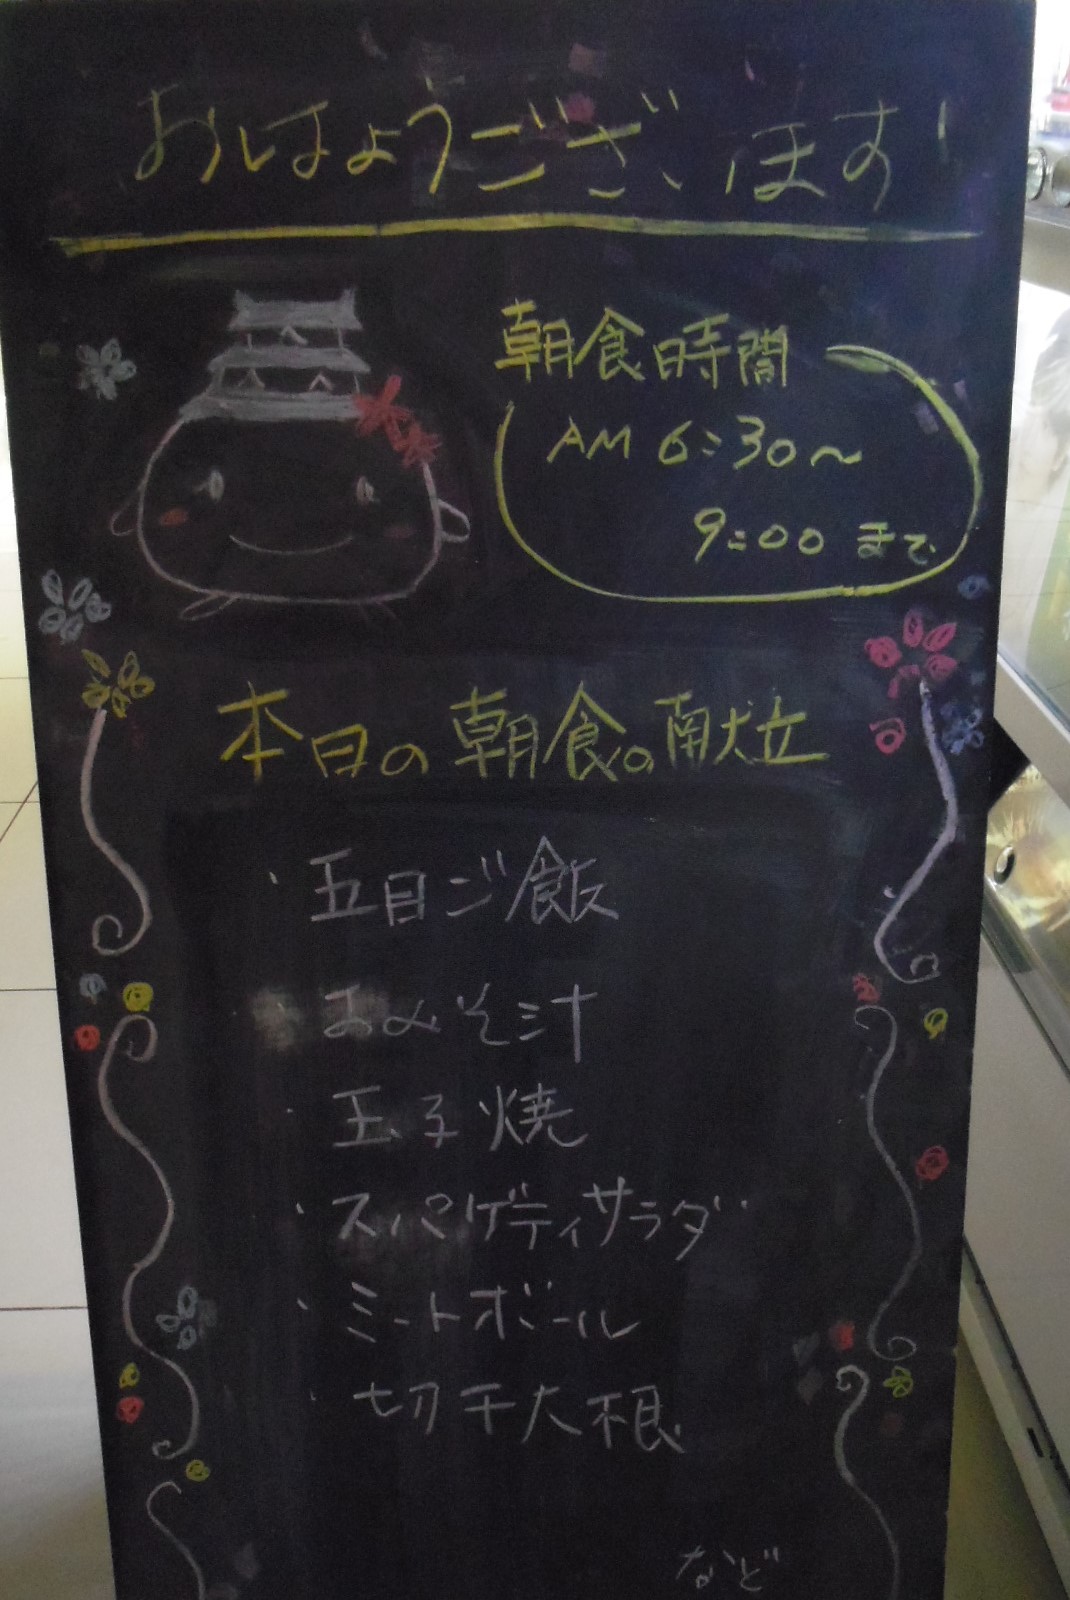 おはようございます!
朝食時間
AM 6:30〜
9:00 まで
本日の朝食の献立
・五目ご飯
・おみそ汁
・玉子焼
・スパゲティサラダ
・ミートボール
・切干大根
など